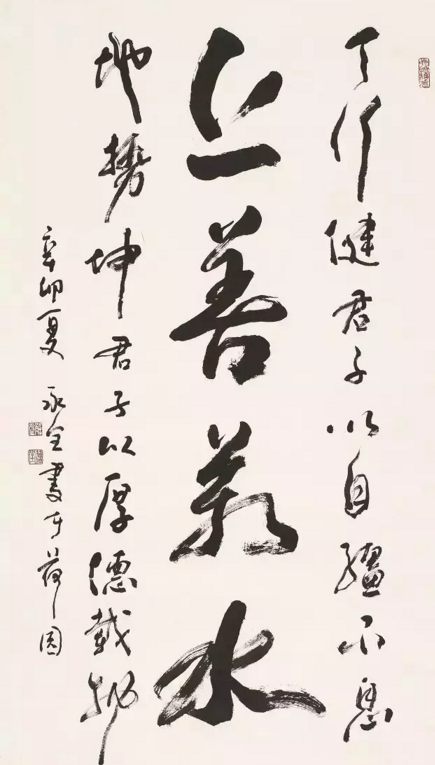 天行健君子以自强不息
上善若水
地势坤君子以厚德载物
辛卯夏永全书于荷园